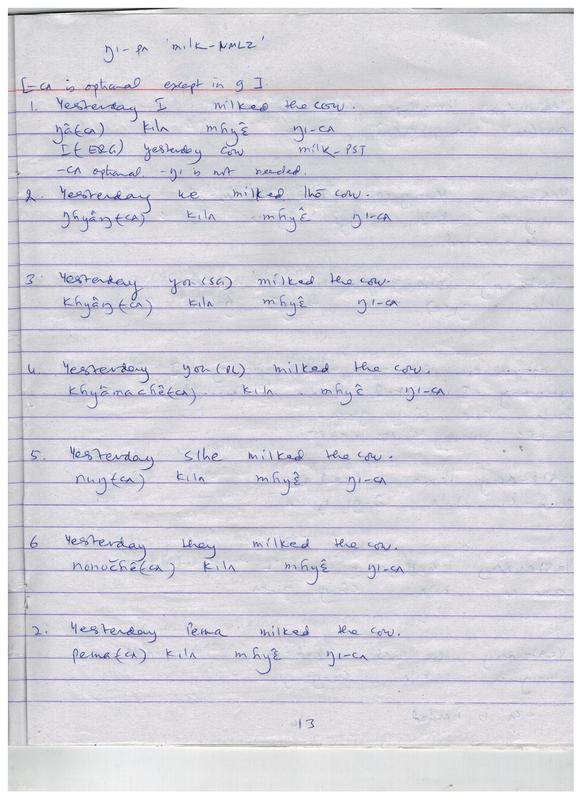 ŋi-pʌ 'milk-NMLZ'
[-cʌ is optional except in 9].
1. Yesterday I milked the cow.
ŋâ(cʌ) kilʌ mɦyɛ̂ ŋi-cʌ
I(ERG) yesterday cow milk-PST
-cʌ optional -ŋi is not needed.
2. Yesterday we milked the cow.
ŋɦyâŋ(cʌ) kilʌ mɦyɛ̂ ŋi-cʌ
3. Yesterday you(SG) milked the cow.
khyâŋ(cʌ) kilʌ mɦyɛ̂ ŋi-cʌ
4. Yesterday you(PL) milked the cow.
khyâmachê(cʌ) kilʌ mɦyɛ̂ ŋi-cʌ
5. Yesterday s/he milked the cow.
nuŋ(cʌ) kilʌ mɦyɛ̂ ŋi-cʌ
6 Yesterday they milked the cow.
nonochê(cʌ) kilʌ mɦyɛ̂ ŋi-cʌ
7. Yesterday Pema milked the cow.
pema(cʌ) kilʌ mɦyɛ̂ ŋi-cʌ
13